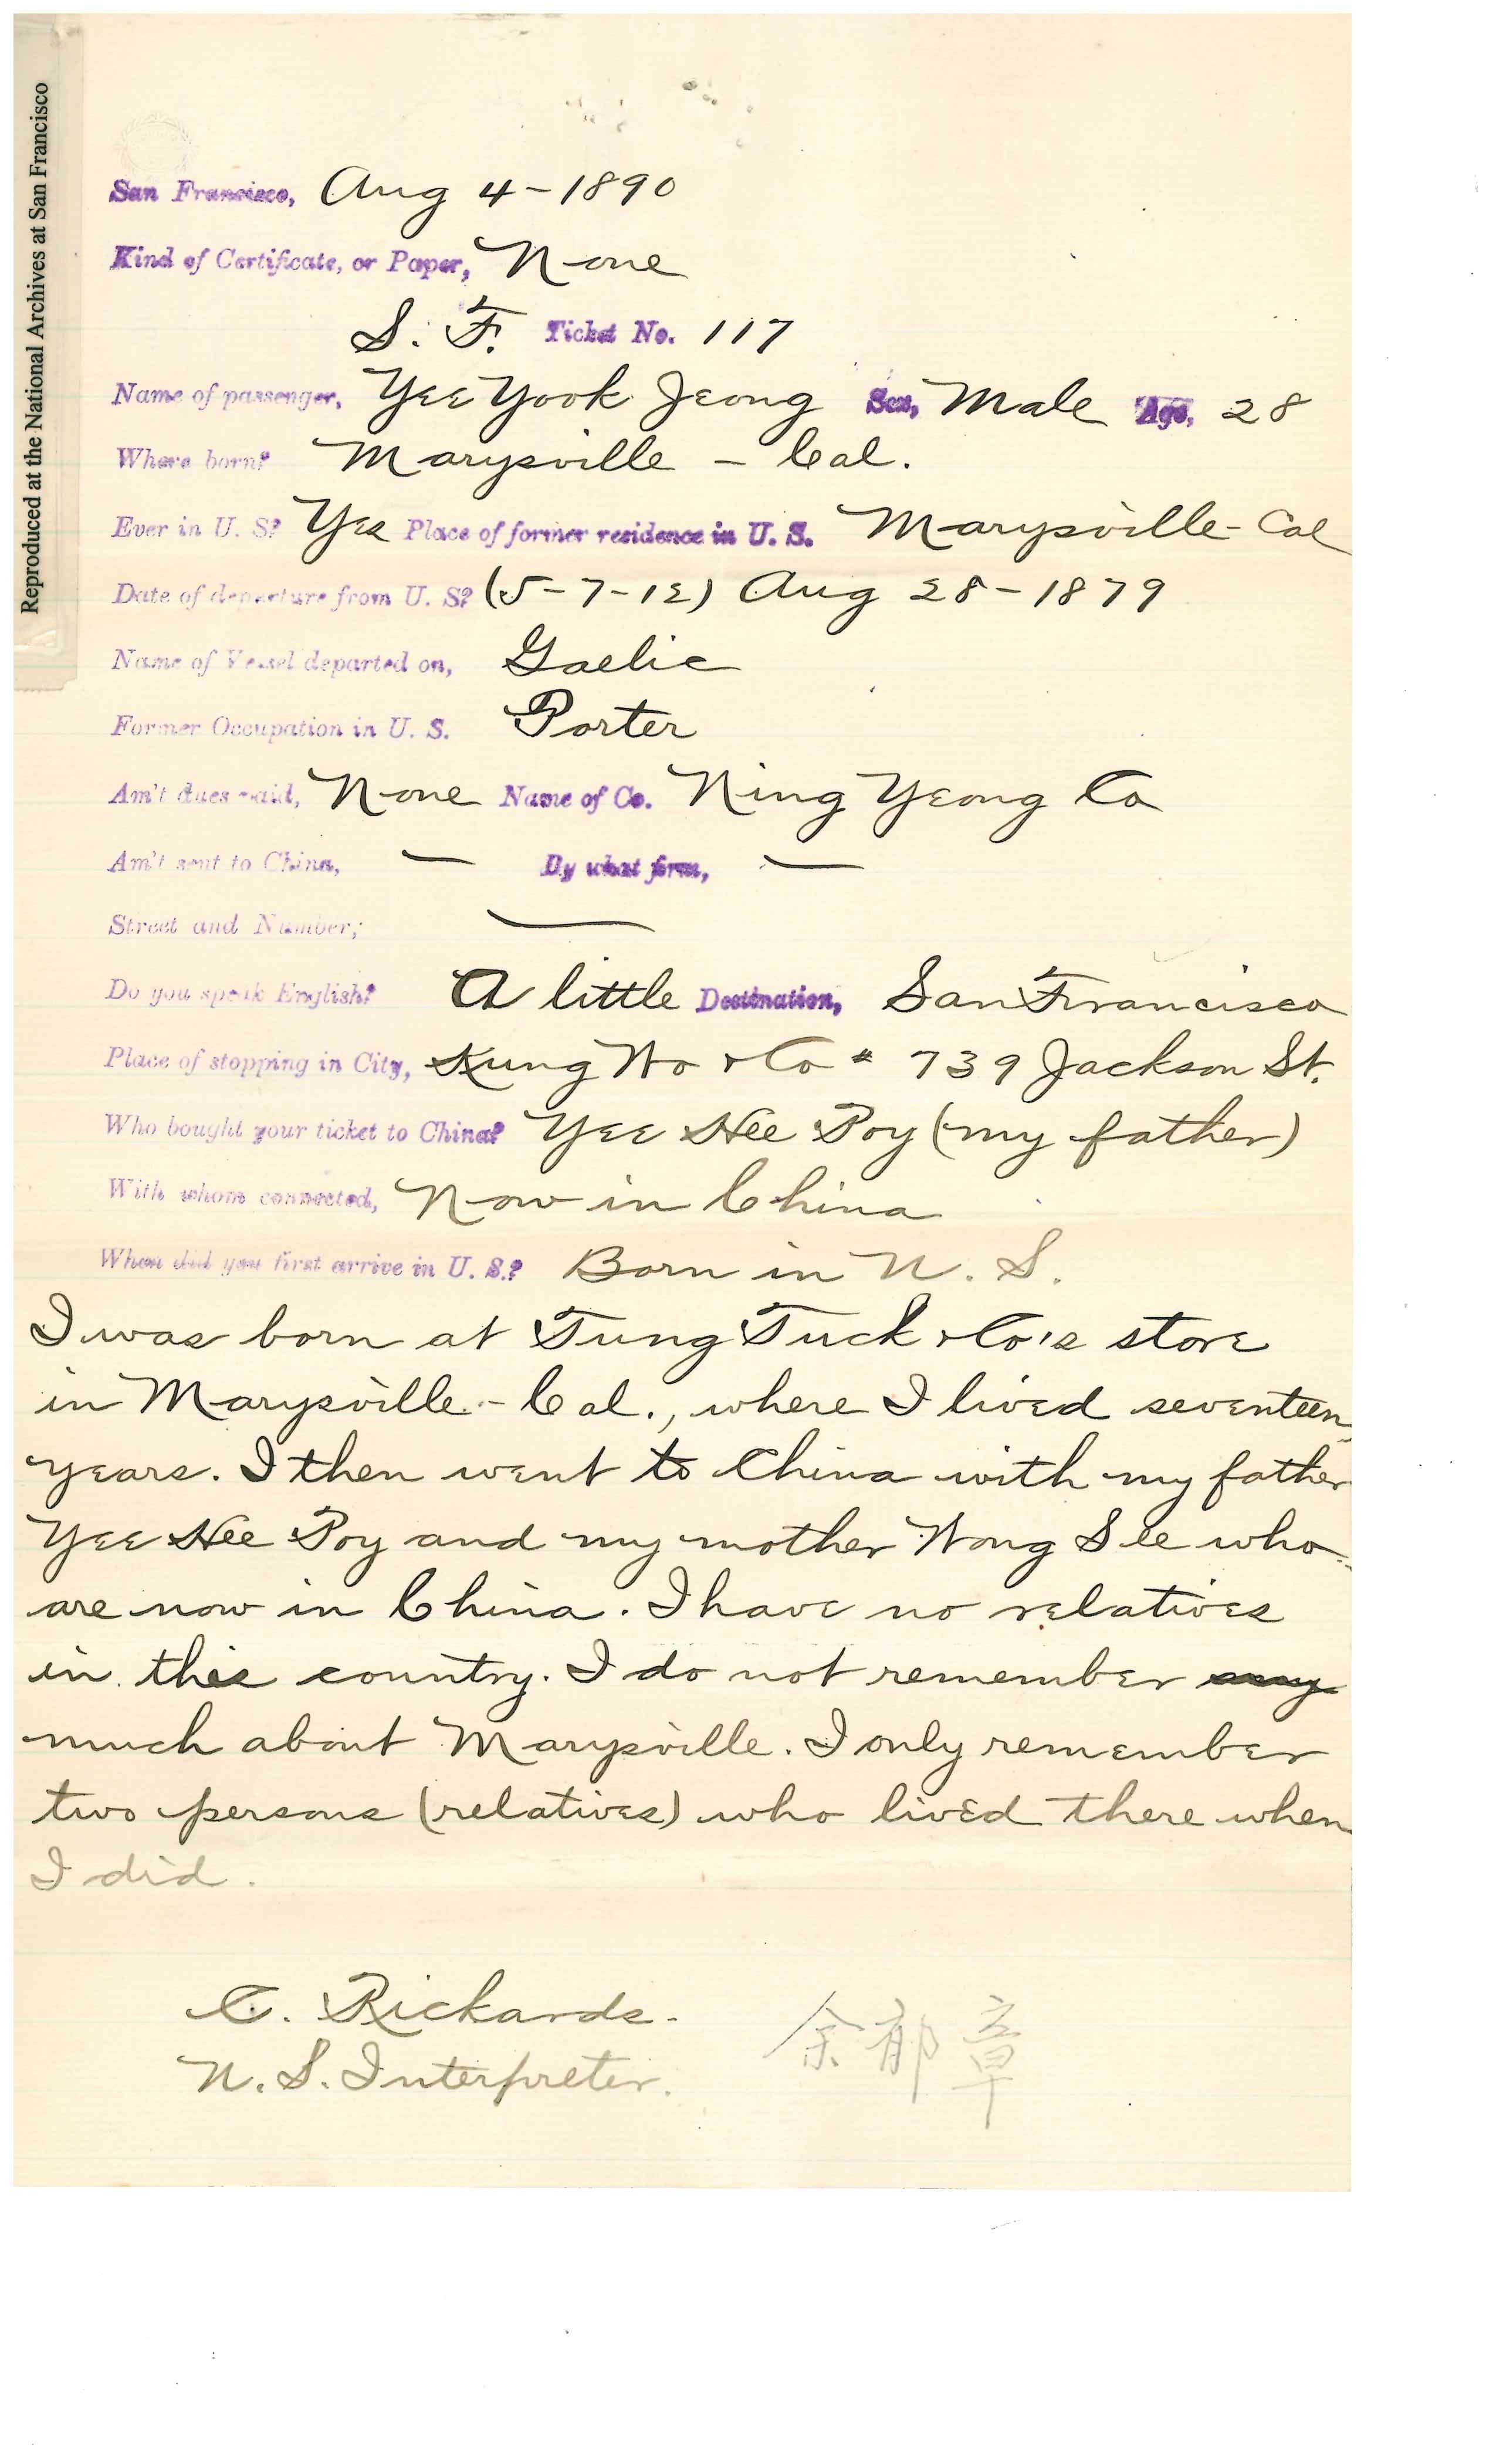 Reproduced at the National Archives at San Francisco
San Francisco, Aug 4 - 1890
Kind of Certificate, or Paper, None
S. F. Ticket No. 117
Name of passenger, Yee Yook Jeong Sex, Male Age, 28
Where born? Marysville - Cal.
Ever in U. S? Yes Place of former residence in U. S. Marysville - Cal
Date of departure from U. S? (5-7-12) Aug 28 - 1879
Name of Vessel departed on, Gaelic
Former Occupation in U. S. Porter
Am't dues paid, None Name of Co. Ning Yeong Co
Am't sent to China, — By what firm, —
Street and Number; —
Do you speak English? A little Destination, San Francisco
Place of stopping in City, Kung Wo & Co # 739 Jackson St.
Who bought your ticket to China? Yee Hee Poy (my father)
With whom connected, Now in China
When did you first arrive in U. S.? Born in U. S.
I was born at Tung Tuck & Co's store
in Marysville - Cal., where I lived seventeen
years. I then went to China with my father
Yee Hee Poy and my mother Wong See who
are now in China. I have no relatives
in this country. I do not remember any
much about Marysville. I only remember
two persons (relatives) who lived there when
I did.
C. Rickards.
U. S. Interpreter.
余郁章